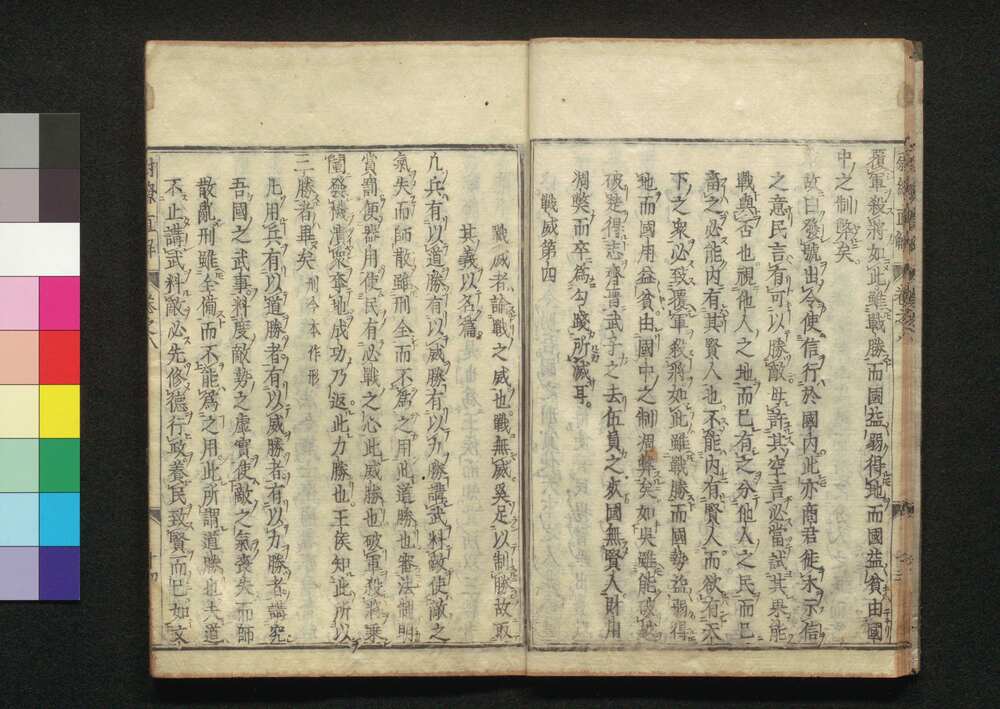 覆軍殺將如此雖戰勝而國益弱得地而國益貧由國
中之制弊矣
故曰發號出令使信行於國内此亦商君徙木示信
之意民言有可以勝敵毋許其空言必當試其果能
戰與否也視他人之地而已有之分他人之民而已
畜之必能内有其賢人也不能内有賢人而欲有天
下之衆必致覆軍殺將如此雖戰勝而國勢益弱得
地而國用益貧由國中之制凋弊矣如吳雖能破楚
破楚得志齊晉武子之去伍員之夾國無賢人財用
凋弊而卒爲勾踐所滅耳
戰威第四
戰威者論戰之威也戰無威奚足以制勝故取
其義以名篇
凡兵有以道勝有以威勝有以力勝講武料敵使敵之
氣失而師散雖刑全而不爲之用此道勝也審法制明
賞罰便器用使民有必戰之心此威勝也破軍殺將乘
闉發機潰衆奪地成功乃返此力勝也王侯知此所以
三勝者畢矣 刑今本作形
凡用兵有以道勝者有以威勝者有以力勝者講究
吾國之武事料度敵勢之虛實使敵之氣喪失而師
散亂刑雖全備而不能爲之用此所謂道勝也夫道
不止講武料敵必先修德行政養民致賢而已如文
尉繚直解 卷之八 十四